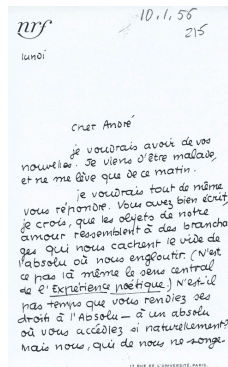 nrf
10.1.56
215
lundi
Cher André
je voudrais avoir de vos
nouvelles. Je viens d'être malade,
et ne me lève que de ce matin.
je voudrais tout de même
vous répondre. Vous avez bien écrit,
je crois, que les objets de notre
amour ressemblent à des brancha
ges qui nous cachent le vide de
l'absolu où nous engloutir. (N'est
ce pas là même le sens central
de l'Expérience poétique.) N'est-il
pas temps que vous rendiez ses
droits à l'Absolu — à un absolu
où vous accédiez si naturellement?
Mais nous, qui de nous ne songe-
17 RUE DE L'UNIVERSITÉ, PARIS.